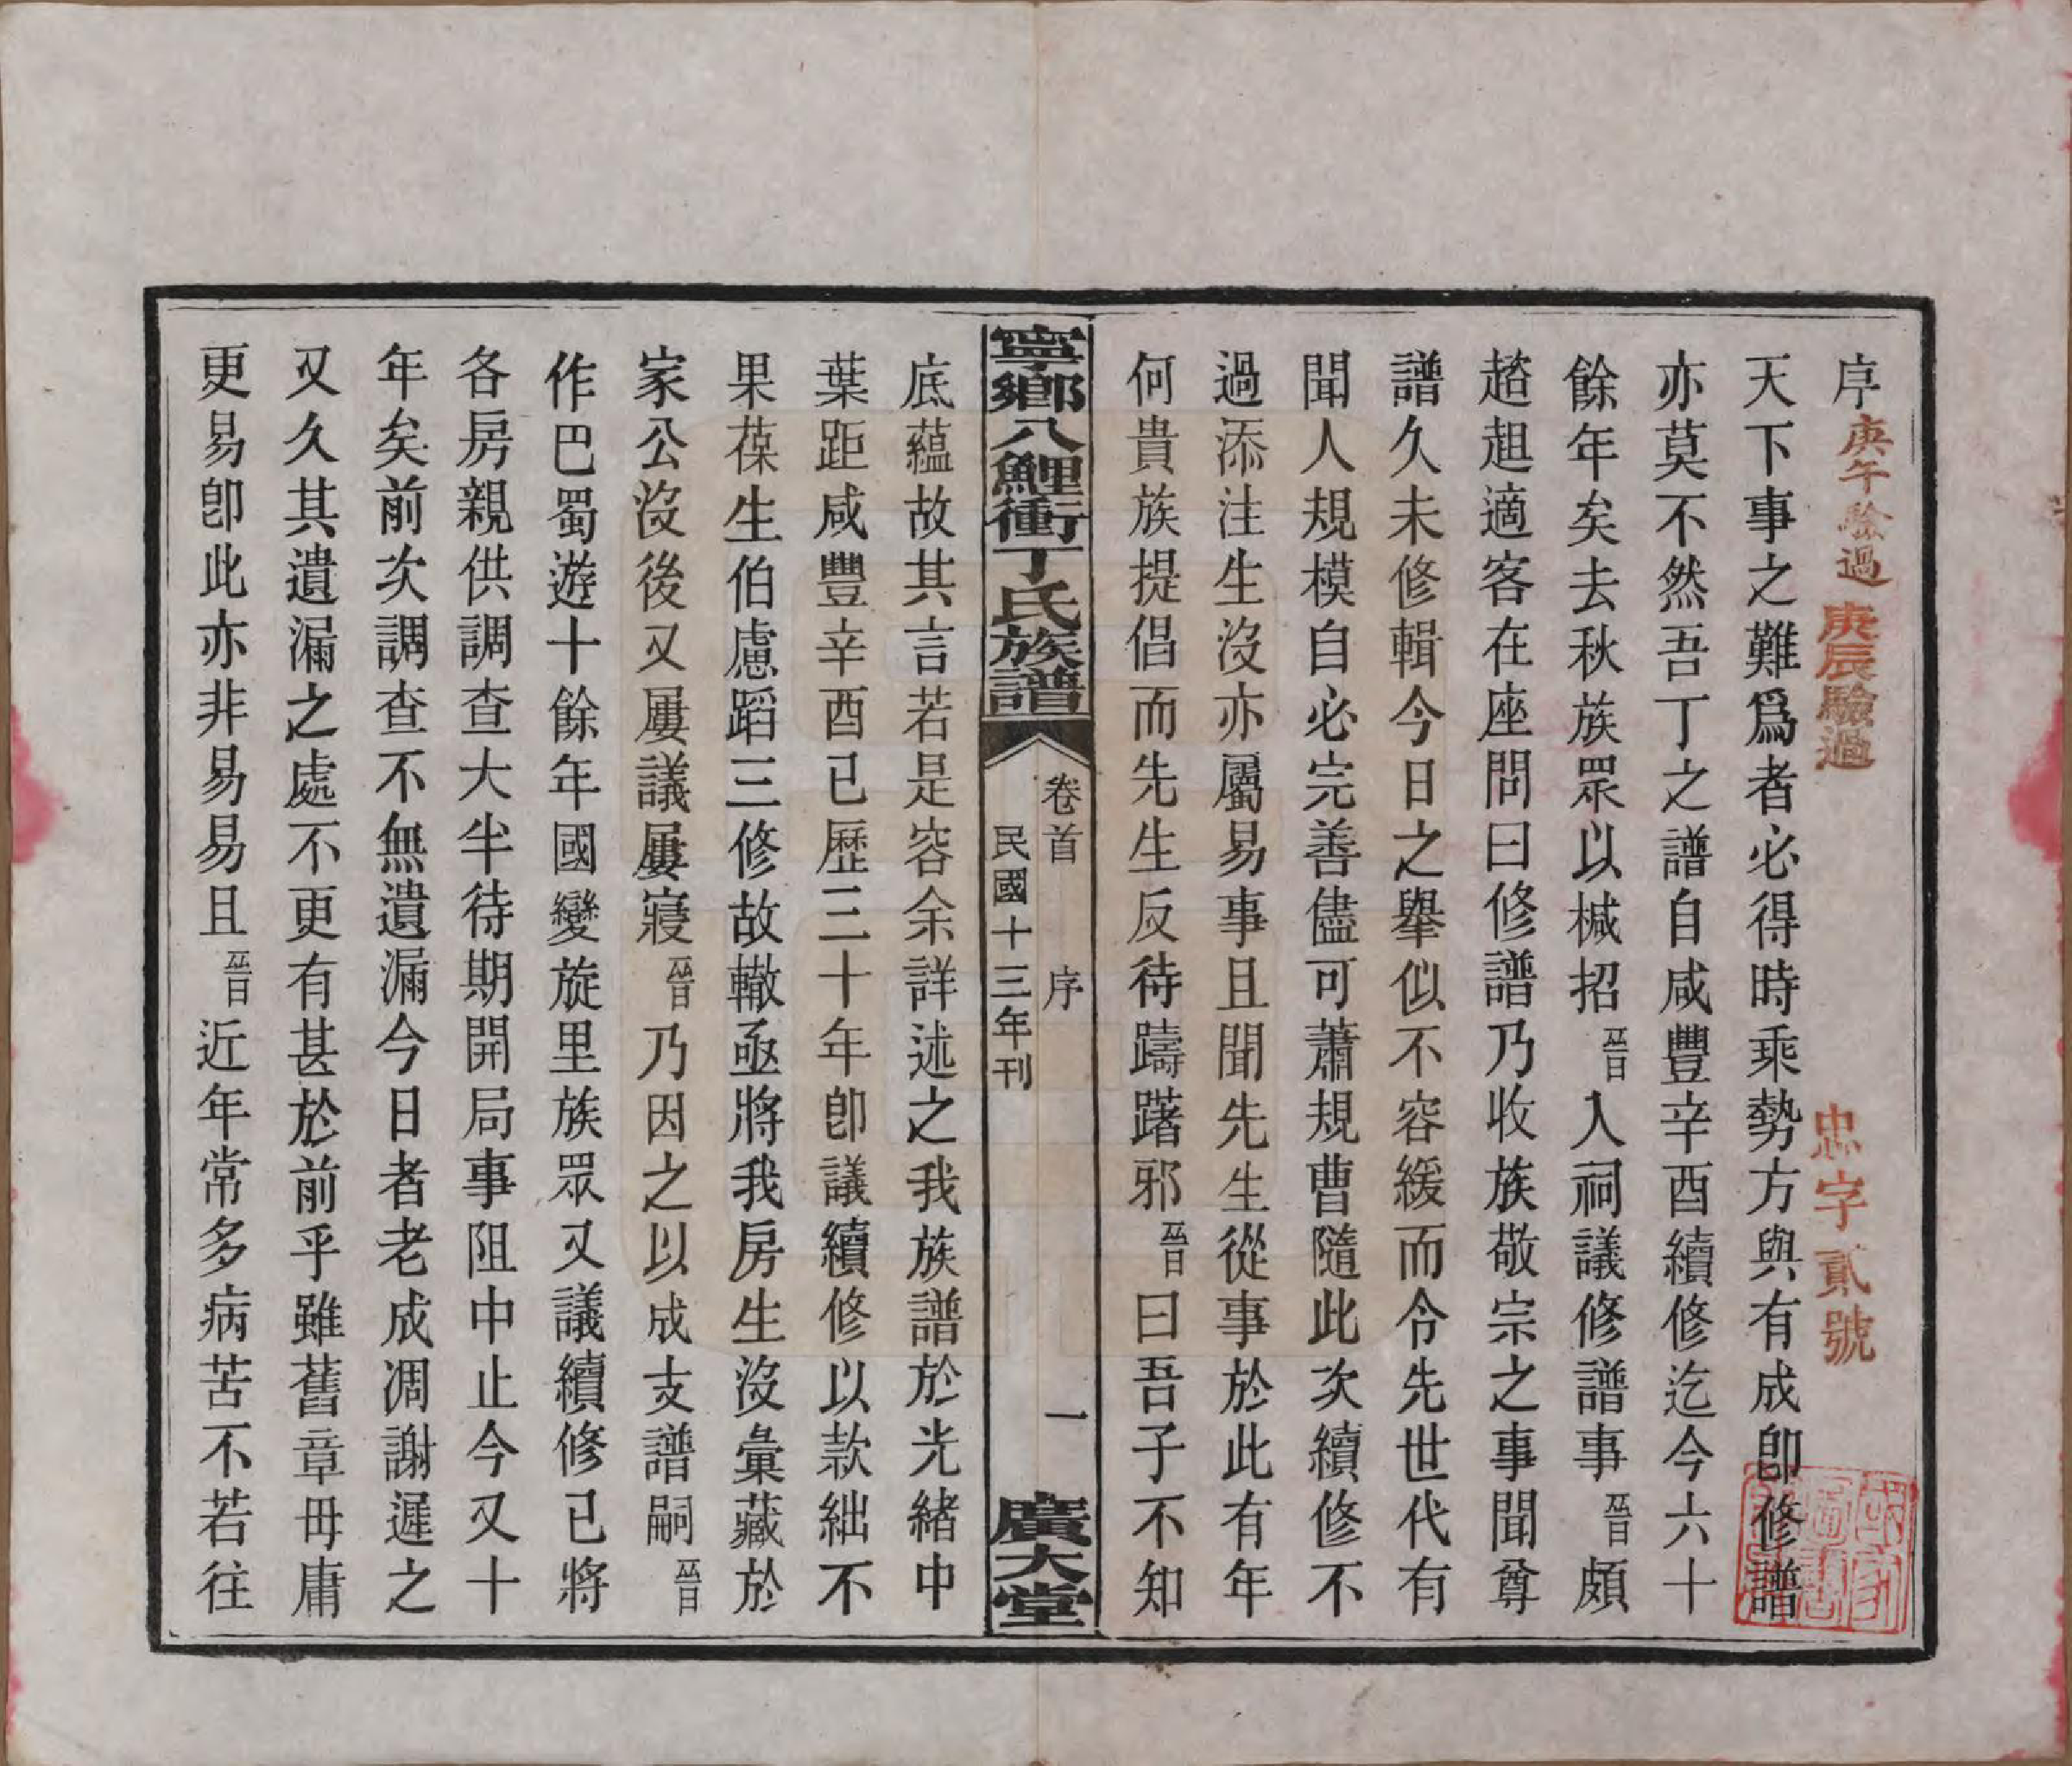 序
庚午驗過
庚辰驗過
忠字貳號
天下事之難爲者必得時乘勢方與有成卽修譜
亦莫不然吾丁之譜自咸豐辛酉續修迄今六十
餘年矣去秋族眾以械招晉入祠議修譜事晉頗
趦趄適客在座問曰修譜乃收族敬宗之事聞尊
譜久未修輯今日之舉似不容緩而令先世代有
聞人規模自必完善儘可蕭規曹隨此次續修不
過添注生沒亦屬易事且聞先生從事於此有年
何貴族提倡而先生反待躊躇邪晉曰吾子不知
寧鄉八鯉衝丁氏族譜
卷首 序 一
民國十三年刊
廣大堂
底蘊故其言若是容余詳述之我族譜於光緒中
葉距咸豐辛酉已歷三十年卽議續修以款絀不
果葆生伯慮蹈三修故轍亟將我房生沒彙藏於
家公沒後又屢議屢寢晉乃因之以成支譜嗣晉
作巴蜀遊十餘年國變旋里族眾又議續修已將
各房親供調查大半待期開局事阻中止今又十
年矣前次調查不無遺漏今日者老成凋謝遲之
又久其遺漏之處不更有甚於前乎雖舊章毋庸
更易卽此亦非易易且晉近年常多病苦不若往